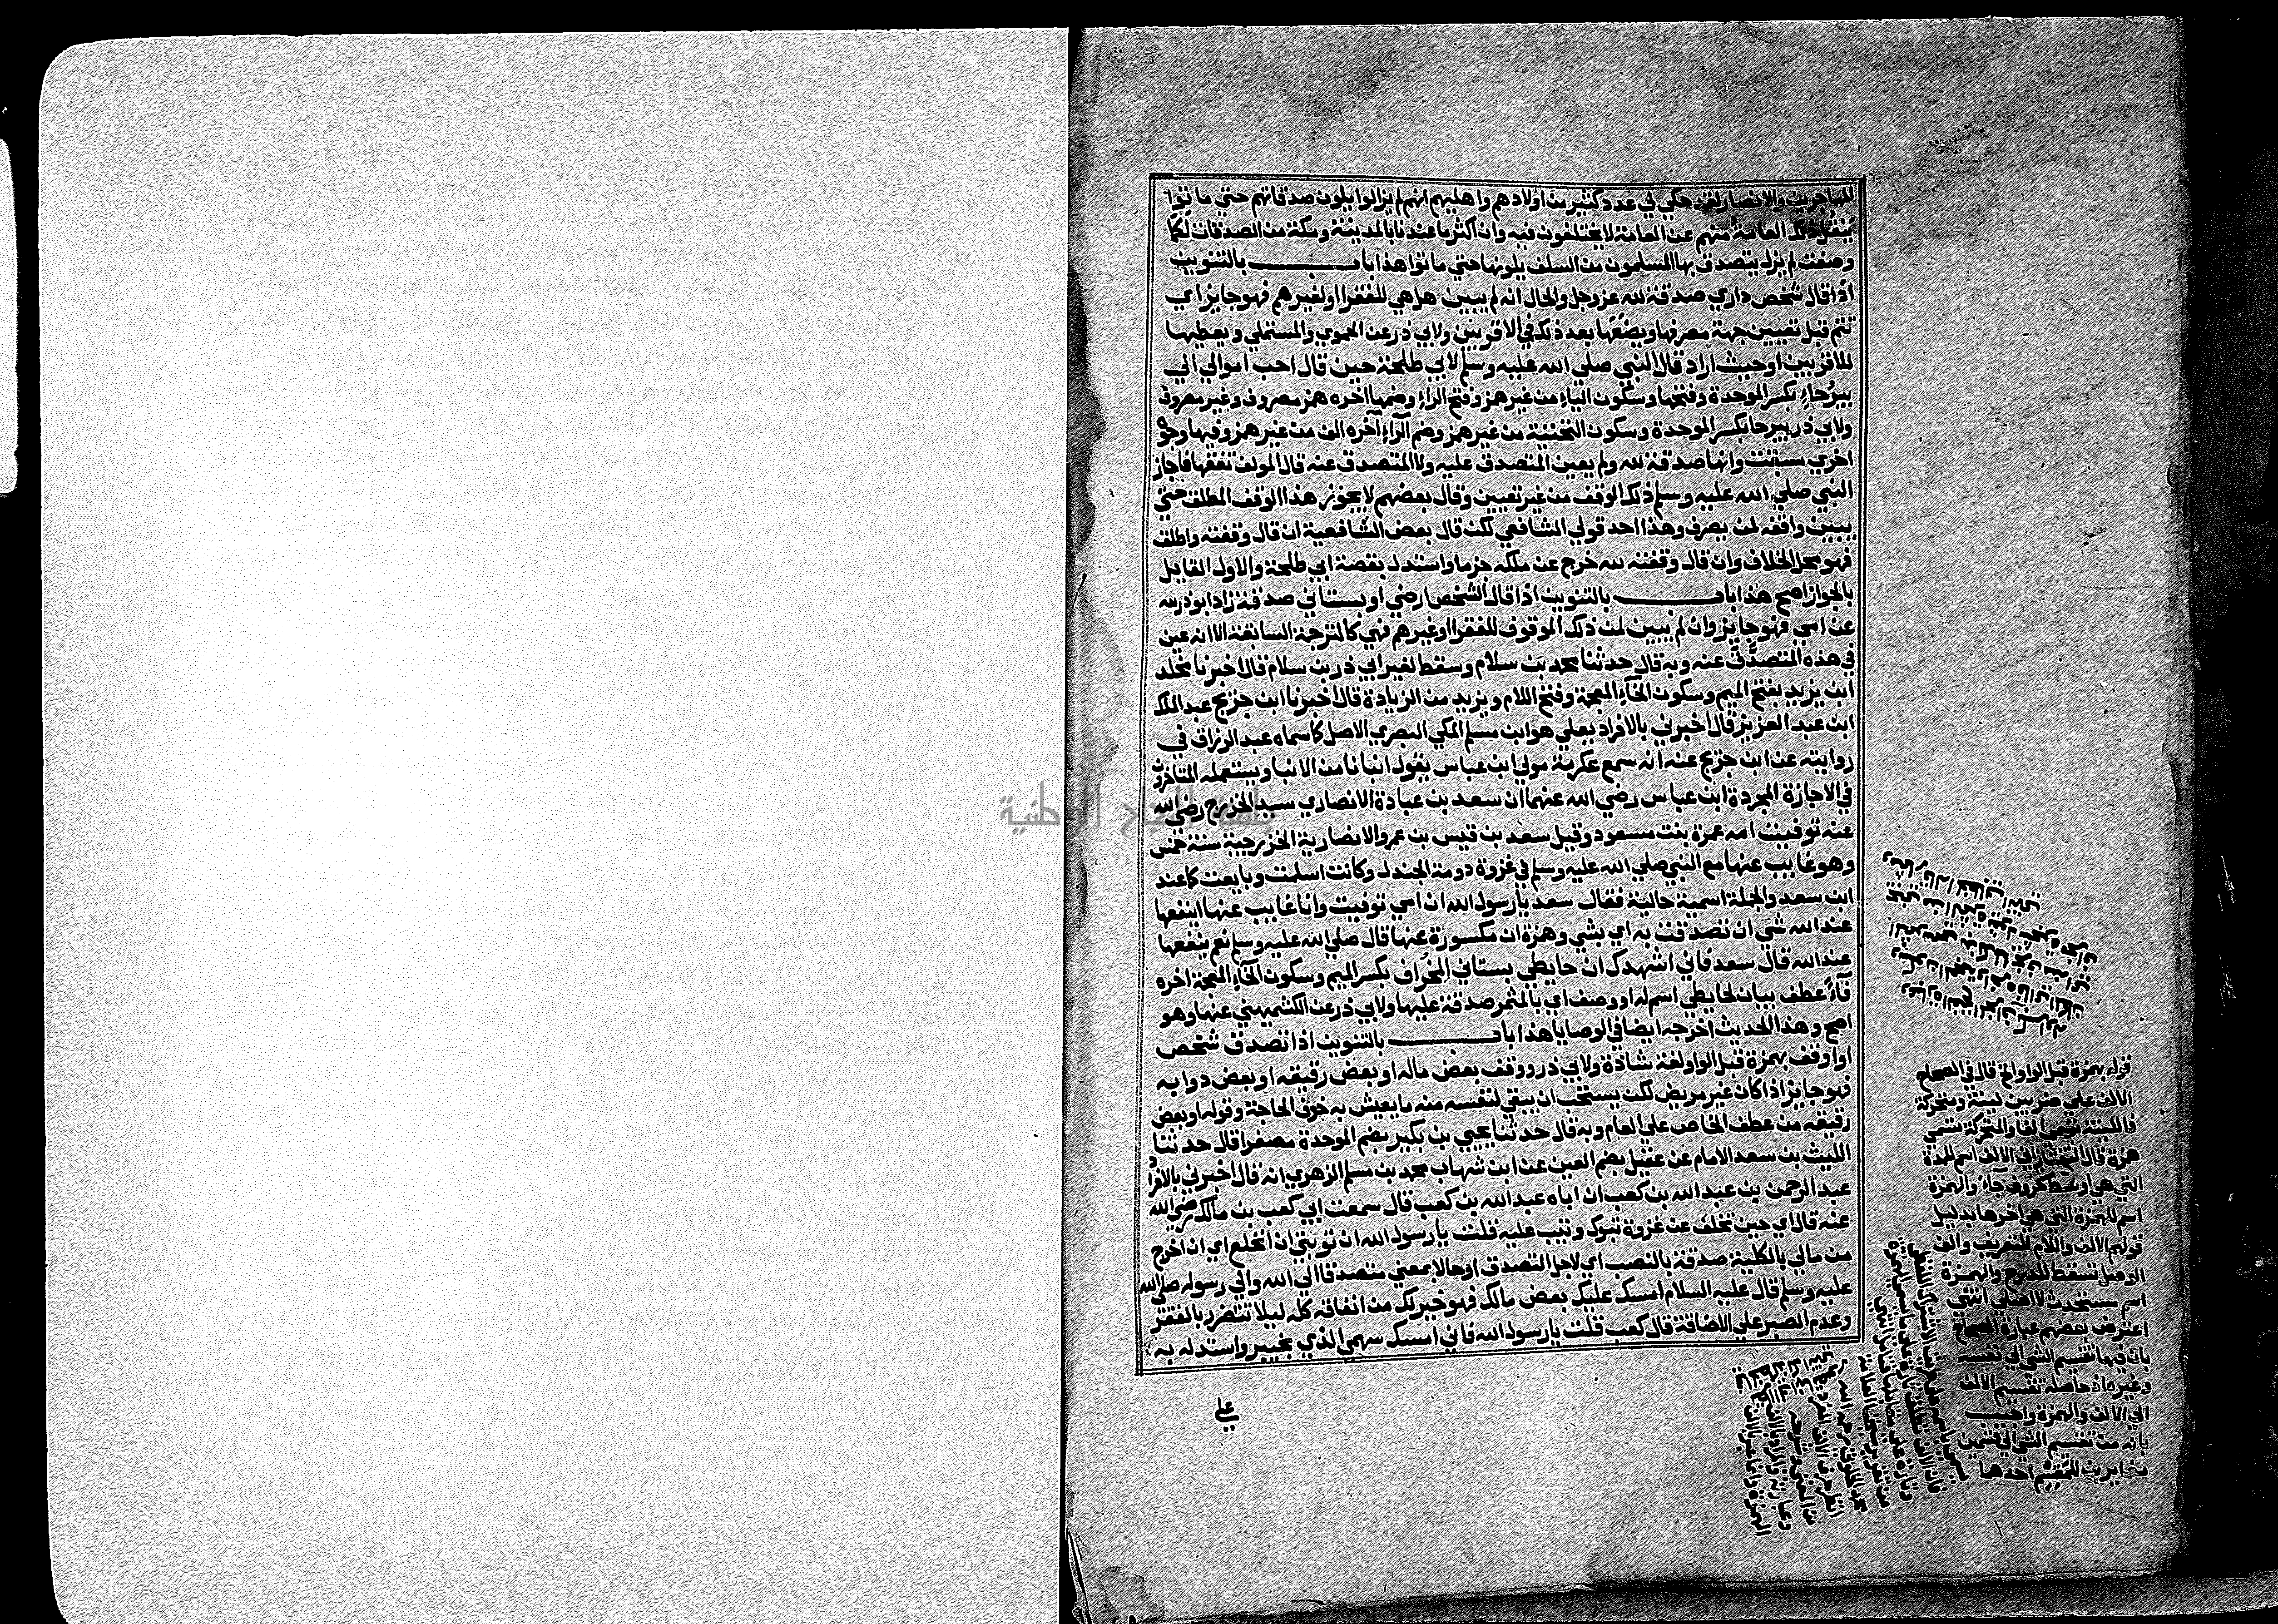 المهاجرين والانصار لقد حكي في عدد كثير من اولادهم واهليهم انهم لم يزالوا يلون صدقاتهم حتي ماتوا
ينقل ذلك العامة منهم عن العامة لا يختلفون فيه وان اكثر ما عندنا بالمدينة ومكة من الصدقات لكما
وصفت لم يزل يتصدق بها المسلمون من السلف يلونها حتي ماتوا هذا باب بالتنوين
اذا قال شخص داري صدقة لله عز وجل والحال انه لم يبين هل هي للفقرا او لغيرهم فهو جايز اي
تتم قبل تعيين جهة مصرفها ويضعها بعد ذلك في الاقربين ولابي ذر عن الحموي والمستملي ويعطيها
للاقربين او حيث اراد قال النبي صلي الله عليه وسلم لابي طلحة حين قال احب اموالي الي
بيرُحاء بكسر الموحدة وفتحها وسكون الياء من غير همز وفتح الراء وضمها اخره همز مصروف وغير مصروف
ولابي ذر بيرحا بكسر الموحدة وسكون التحتية من غير همز وضم الراء آخره الف من غير همز وفيها وجوه
اخري سبقت وانها صدقة لله ولم يعين المتصدق عليه ولا المتصدق عنه قال المولف تفقها فاجاز
النبي صلي الله عليه وسلم ذلك الوقف من غير تعيين وقال بعضهم لا يجوز هذا الوقف المطلق حتي
يبين واقفه لمن يصرف وهذا احد قولي الشافعي لكن قال بعض الشافعية ان قال وقفته واطلق
فهو محل الخلاف وان قال وقفته لله خرج عن ملكه جزما واستدل بقصة ابي طلحة والاول القايل
بالجواز اصح هذا باب بالتنوين اذا قال الشخص ارضي او بستاني صدقة زاد ابو ذر لله
عن امي فهو جايز وان لم يبين لمن ذلك الموقوف للفقرا او غيرهم فهي كالترجمة السابقة الا انه عين
في هذه المتصدَّق عنه وبه قال حدثنا محمد بن سلام وسقط لغير ابي ذر بن سلام قال اخبرنا مخلد
ابن يزيد بفتح الميم وسكون الخاء المعجمة وفتح اللام ويزيد من الزيادة قال اخبرنا ابن جريج عبد الملك
ابن عبد العزيز قال اخبرني بالافراد يعلي هو ابن مسلم المكي البصري الاصل كما سماه عبد الرزاق في
روايته عن ابن جريج عنه انه سمع عكرمة مولي ابن عباس يقول انبانا من الانبا ويستعمله المتاخرون
في الاجازة المجردة ابن عباس رضي الله عنهما ان سعد بن عبادة الانصاري سيد الخزرج رضي الله
عنه توفيت امه عمرة بنت مسعود وقيل سعد بن قيس بن عمرو الانصارية الخزرجية سنة خمس
وهو غايب عنها مع النبي صلي الله عليه وسلم في غزوة دومة الجندل وكانت اسلمت وبايعت كما عند
ابن سعد والجملة اسمية حالية فقال سعد يا رسول الله ان امي توفيت وانا غايب عنها اينفعها
عند الله شي ان تصدقت به اي بشي وهمزة ان مكسورة عنها قال صلي الله عليه وسلم نعم ينفعها
عند الله قال سعد فاني اشهدك ان حايطي بستاني المخراف بكسر الميم وسكون الخاء المعجمة اخره
فاء عطف بيان لحايطي اسم له او وصف اي بالمثمر صدقة عليها ولابي ذر عن الكشميهني عنها وهو
اصح وهذا الحديث اخرجه ايضا في الوصايا هذا باب بالتنوين اذا تصدق شخص
او اوقف بهمزة قبل الواو لغة شاذة ولابي ذر ووقف بعض ماله او بعض رقيقه او بعض دوابه
فهو جايز اذا كان غير مريض لكن يستحب ان يبقي لنفسه منه ما يعيش به خوف الحاجة وقوله او بعض
رقيقه من عطف الخاص علي العام وبه قال حدثنا يحيي بن بكير بضم الموحدة مصغرا قال حدثنا
الليث بن سعد الامام عن عقيل بضم العين عن ابن شهاب محمد بن مسلم الزهري انه قال اخبرني بالافراد
عبد الرحمن بن عبد الله بن كعب ان اباه عبد الله بن كعب قال سمعت ابي كعب بن مالك رضي الله
عنه قال اي حين تخلف عن غزوة تبوك وتيب عليه قلت يا رسول الله ان توبتي ان انخلع اي ان اخرج
من مالي بالكلية صدقة بالنصب اي لاجل التصدق او حالا بمعني متصدقا الي الله والي رسوله صلي الله
عليه وسلم قال عليه السلام امسك عليك بعض مالك فهو خير لك من انفاقه كله ليلا تتضرر بالفقر
وعدم الصبر علي الاضاقة قال كعب قلت يا رسول الله فاني امسك سهمي الذي بخيبر واستدل به
علي
قوله بهمزة قبل الواو الخ قال في الصحاح
الالف علي ضربين لينة ومتحركة
فاللينة تسمي الفا والمتحركة تسمي
همزة قال التفتازاني الالف اسم للمدة
التي هي اوسط حروف جاء والهمزة
اسم للهمزة التي هي اخرها بدليل
قولهم الالف واللام للتعريف والف
الوصل تسقط للدرج والهمزة
اسم مستحدث لا اصلي انتهي
اعترض بعضهم عبارة الصحاح
بان فيها تقسيم الشي الي نفسه
وغيره اذ حاصله تقسيم الالف
الي الالف والهمزة واجيب
بانه من تقسيم الشي الي قسمين
مغايرين للمقسم احدهما